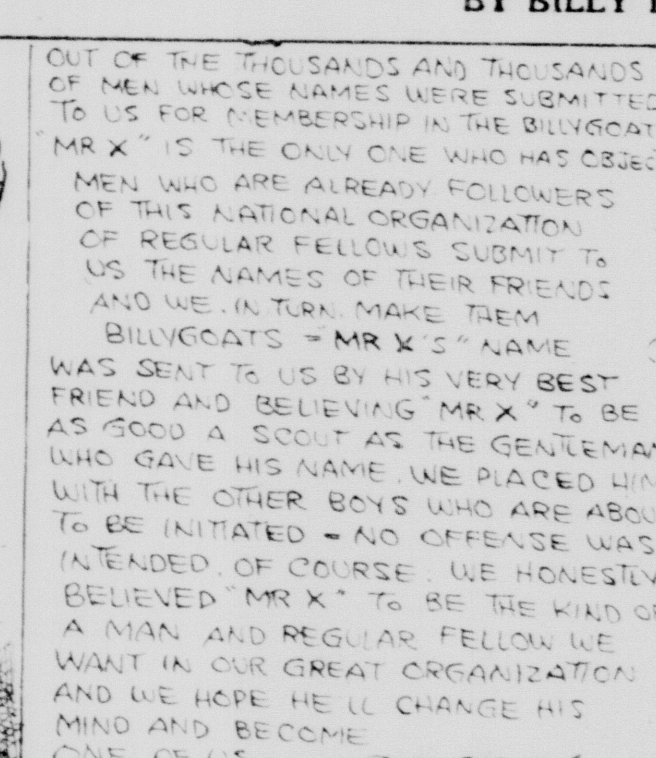 BY BILLY
OUT OF THE THOUSANDS AND THOUSANDS
OF MEN WHOSE NAMES WERE SUBMITTED
TO US FOR MEMBERSHIP IN THE BILLYGOAT
"MR X" IS THE ONLY ONE WHO HAS OBJEC
MEN WHO ARE ALREADY FOLLOWERS
OF THIS NATIONAL ORGANIZATION
OF REGULAR FELLOWS SUBMIT TO
US THE NAMES OF THEIR FRIENDS
AND WE, IN TURN, MAKE THEM
BILLYGOATS = "MR X'S" NAME
WAS SENT TO US BY HIS VERY BEST
FRIEND AND BELIEVING "MR X" TO BE
AS GOOD A SCOUT AS THE GENTLEMAN
WHO GAVE HIS NAME, WE PLACED HIM
WITH THE OTHER BOYS WHO ARE ABOU
TO BE INITIATED - NO OFFENSE WAS
INTENDED, OF COURSE. WE HONESTLY
BELIEVED "MR X" TO BE THE KIND OF
A MAN AND REGULAR FELLOW WE
WANT IN OUR GREAT ORGANIZATION
AND WE HOPE HE'LL CHANGE HIS
MIND AND BECOME
ONE OF US